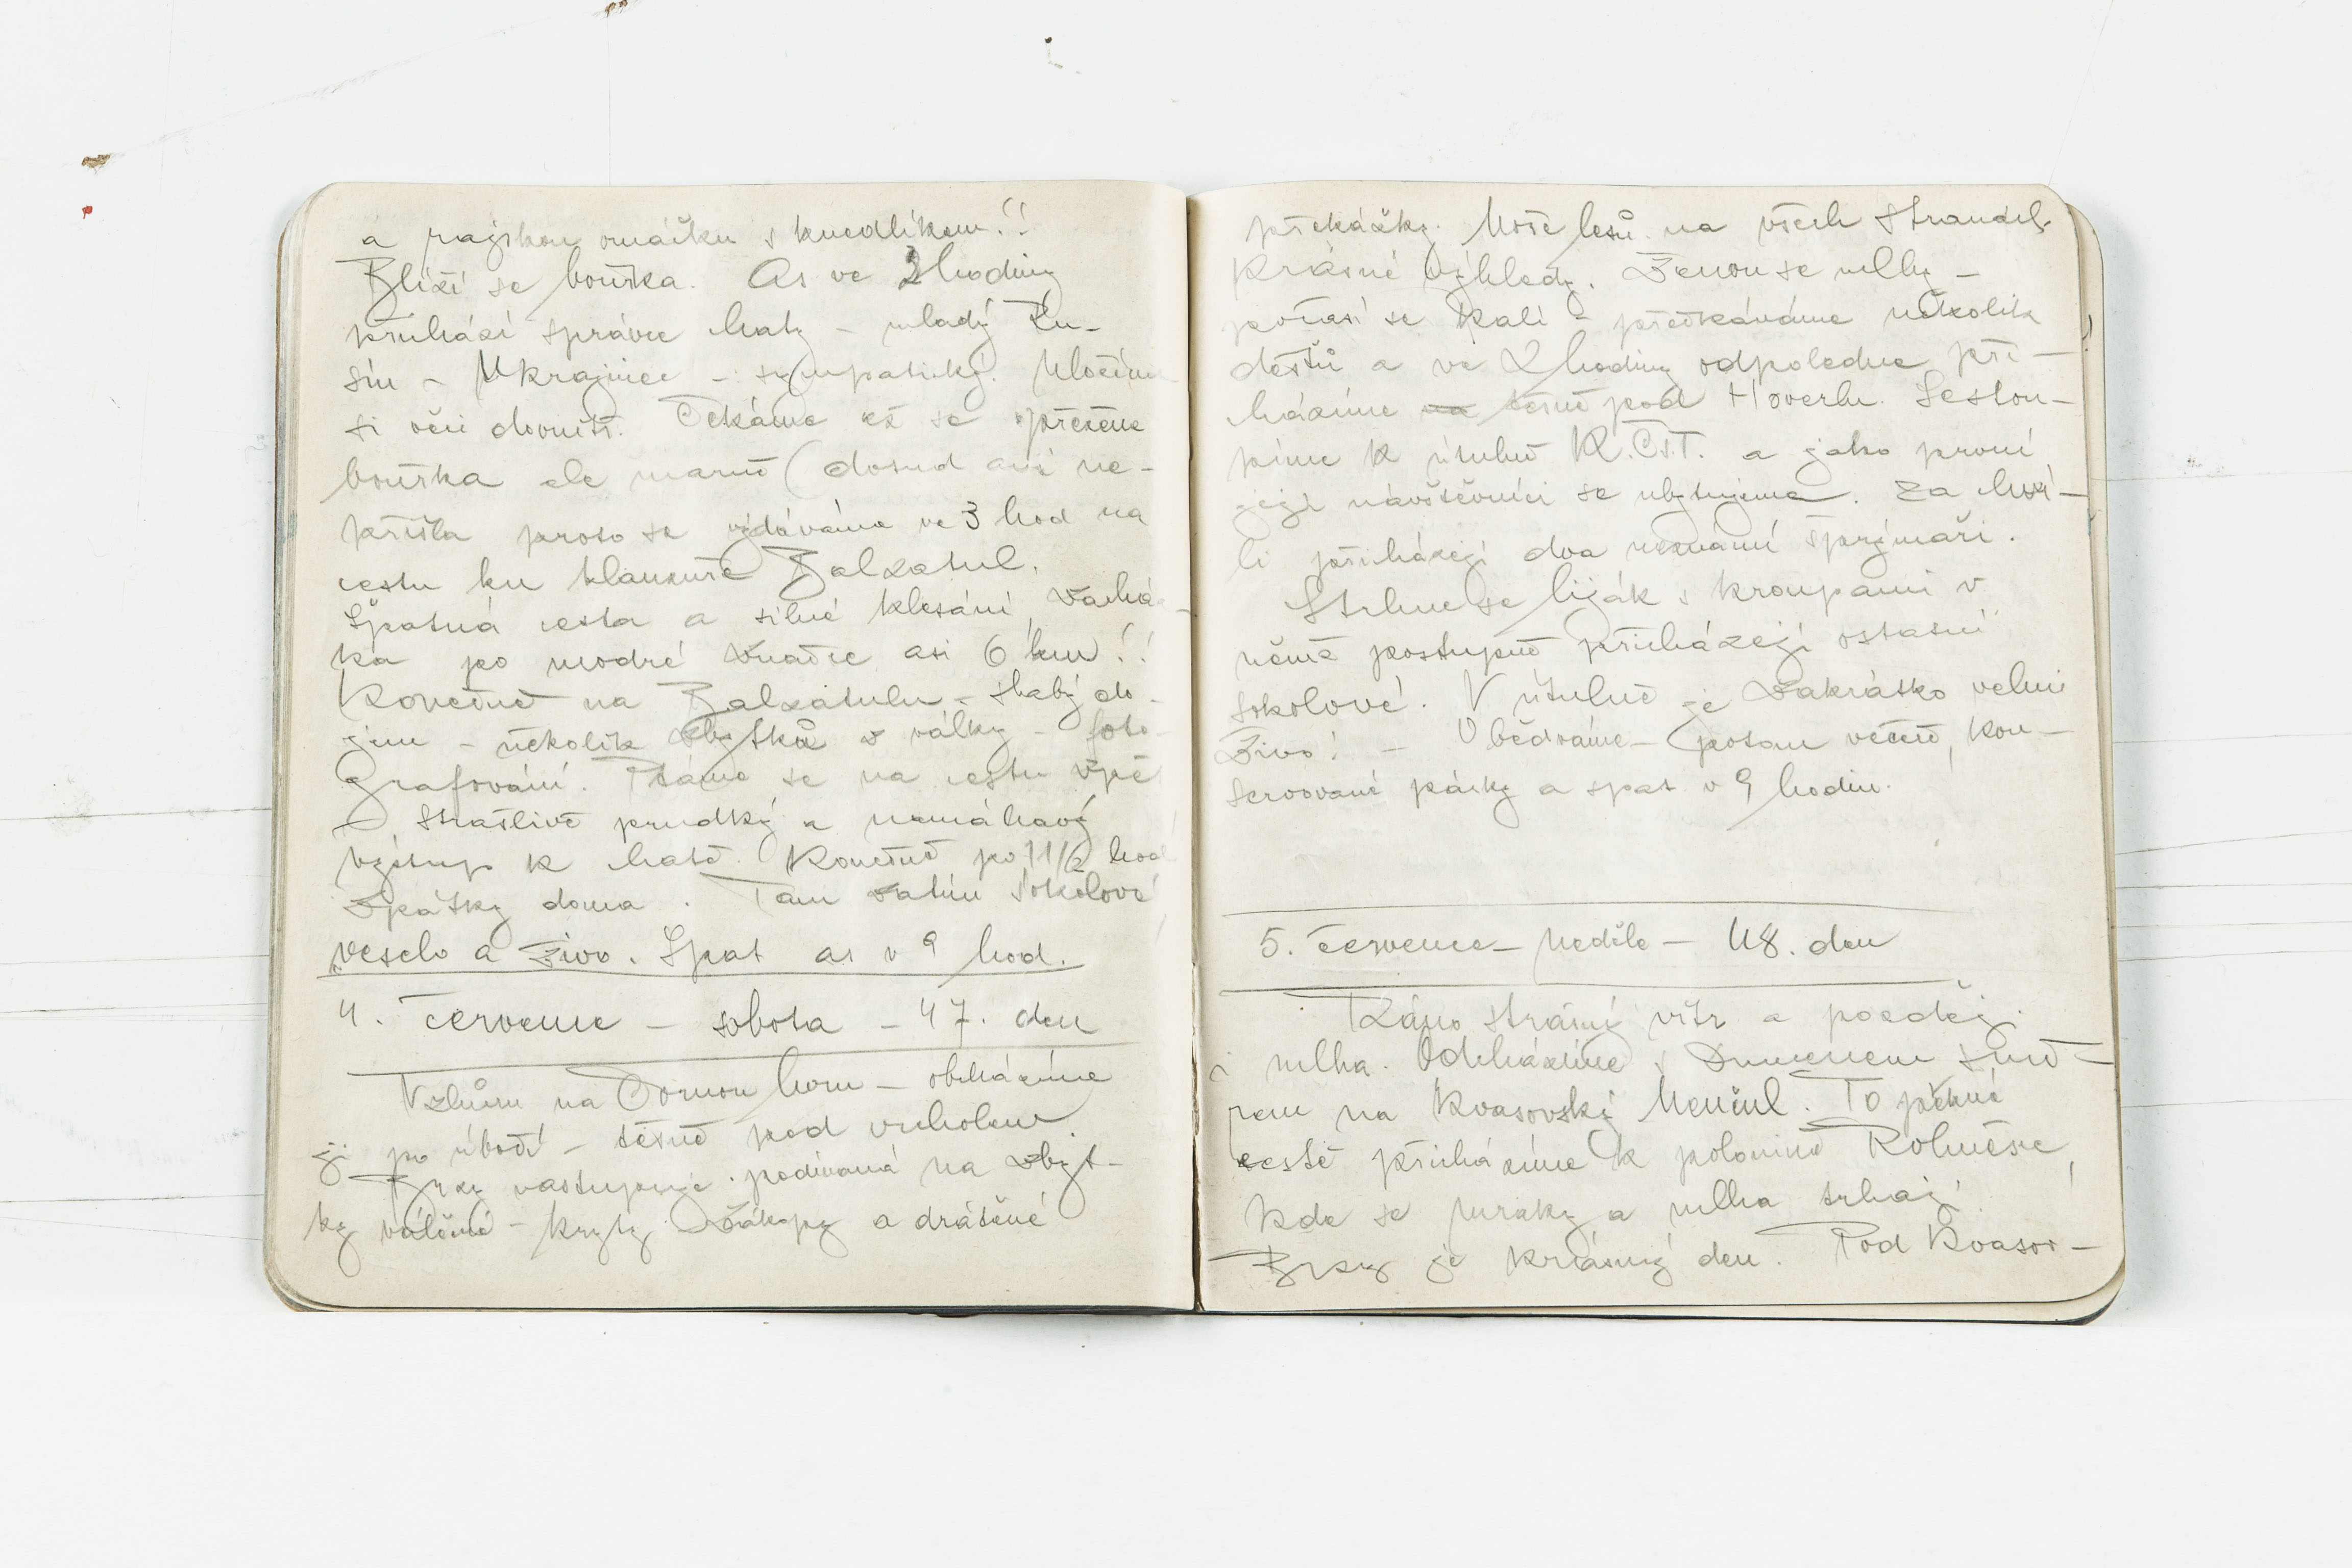 a rajskou omáčku s knedlíkem!!
Blíží se bouřka. As ve 2 hodiny
přichází správce chaty - mladý Ru-
sín - Ukrajinec - sympatický. Uložíme
si věci dovnitř. Čekáme až se přežene
bouřka ale marně (dosud ani ne-
přišla proto se vydáváme ve 3 hod na
cestu ku klausuře Balzatul.
Špatná cesta a silné klesání, zachá-
ka po modré značce asi 6 km!!
Konečně na Balzatulu - slabý do-
jem - několik zbytků z války - foto-
grafování. Dáme se na cestu zpě
t, strašlivě prudký a namáhavý
výstup k chatě. Konečně po 1 1/2 hod
zpátky doma. Tam zatím sokolové
veselo a živo. Spat as v 9 hod.
4. července - sobota - 47. den
Vzhůru na Černou horu - obcházíme
ji po úbočí - těsně pod vrcholem.
Brzy nastupuje podívaná na zbyt-
ky válečné - kryty, zákopy a drátěné
překážky. Moře lesů na všech stranách.
Krásné výhledy. Ženou se mlhy -
počasí se kalí - přečkáváme několik
dešťů a ve 2 hodiny odpoledne při-
cházíme na těsně pod Hoverlu. Sestou-
píme k útulně K.Č.S.T. a jako první
její návštěvníci se ubytujeme. Za chví-
li přicházejí dva neznámí šprýmaři.
Strhne se liják s kroupami v
němž postupně přicházejí ostatní
sokolové. V útulně je zakrátko velmi
živo! - Obědváme - potom večeře, kon-
servované párky a spat v 9 hodin.
5. července - neděle - 48. den
Ráno strašný vítr a později
i mlha. Odcházíme s
rem na Kvasovský Menčul. Po pěkné
cestě přicházíme k polonině
kde se mraky a mlha trhají.
Brzy je krásný den. Pod Kvasov-